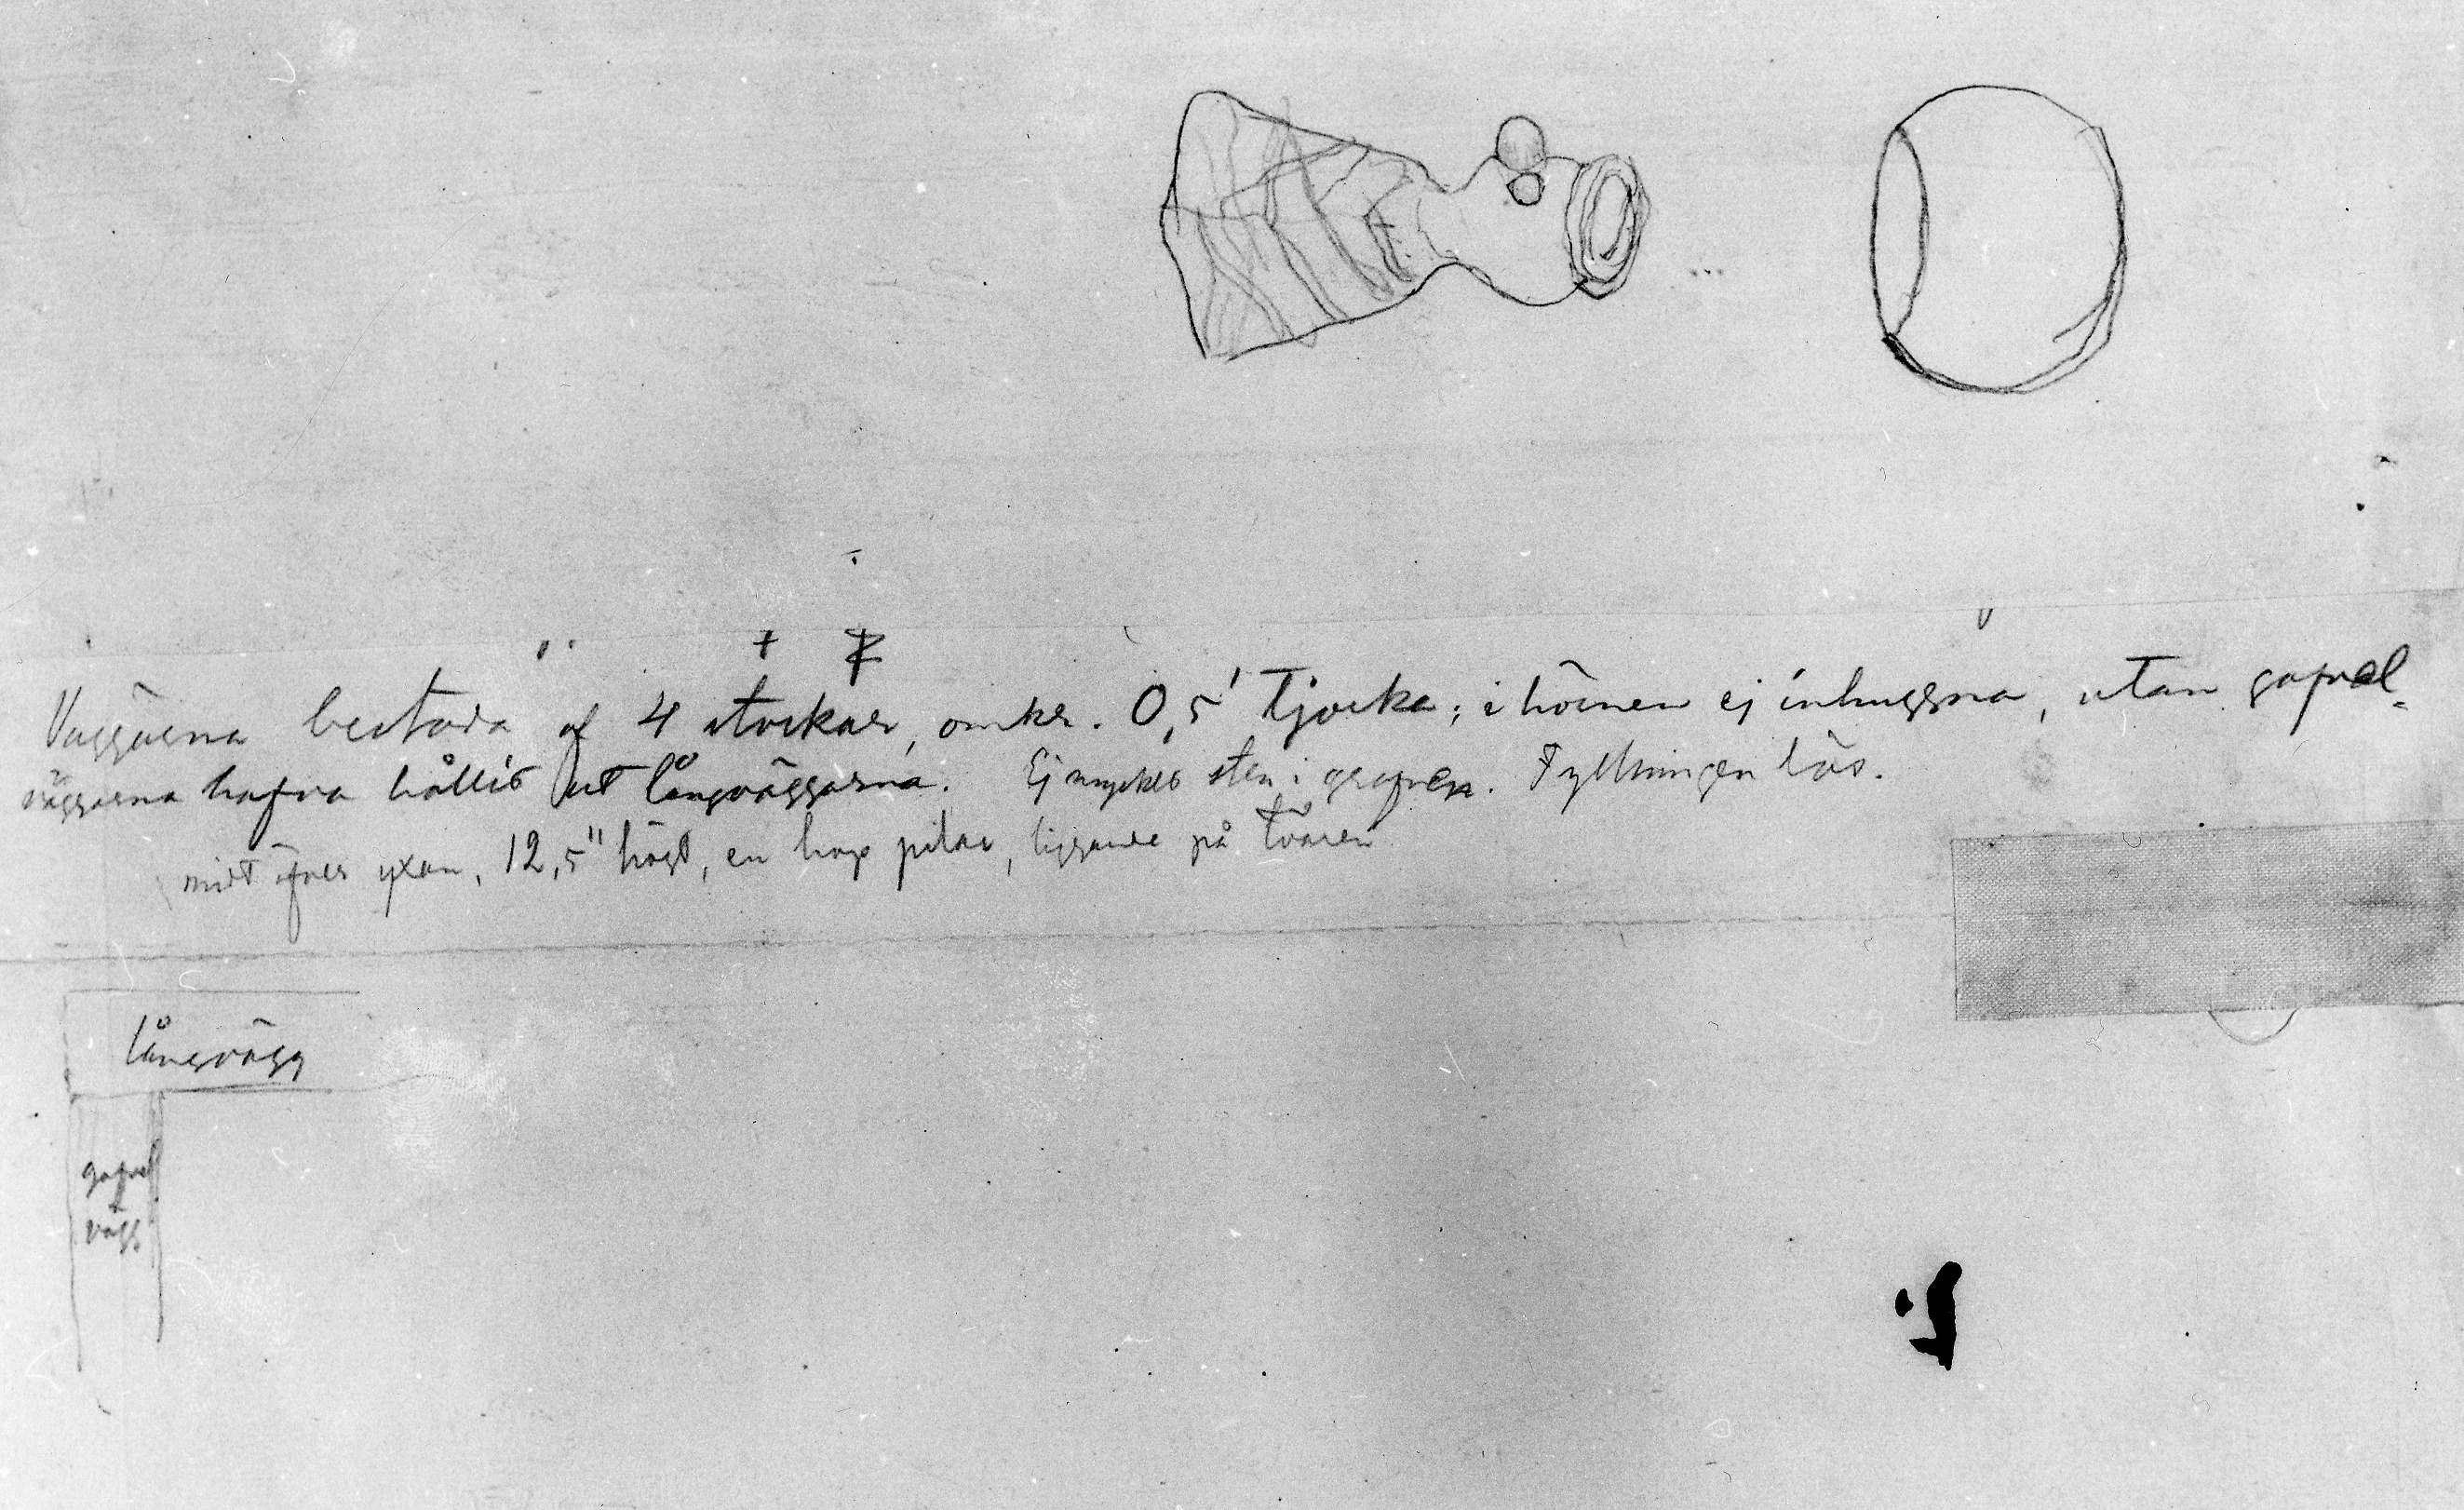 Väggarna bestodo af 4 stockar, omkr. 0,5' tjocka; i hörnen ej inhuggna, utan gafvel-
väggarna hafva hållit ut långväggarna. Ej mycket sten i grafven. Fyllningen lös.
midt öfver yxan, 12,5" högt, en hop pilar, liggande på tvären
långvägg
gafvel
vägg